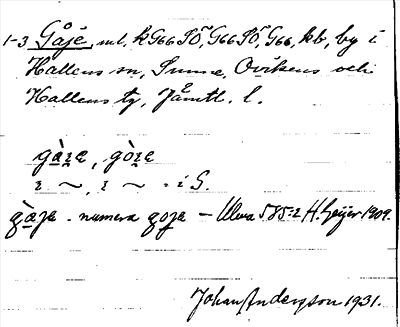 1-3 Gåje, ml. k G66 SÖ, G66 SÖ, G66, kb, by i
Hallens sn, Sunne, Ovikens och
Hallens tg, Jämtl. l.
gà̱ʒe, gòʒe
ɪ ~, ɪ ~ = i G.
gàje - numera goje - Ulma 585:2 H. Geijer 1909.
Johan Anderson 1931.